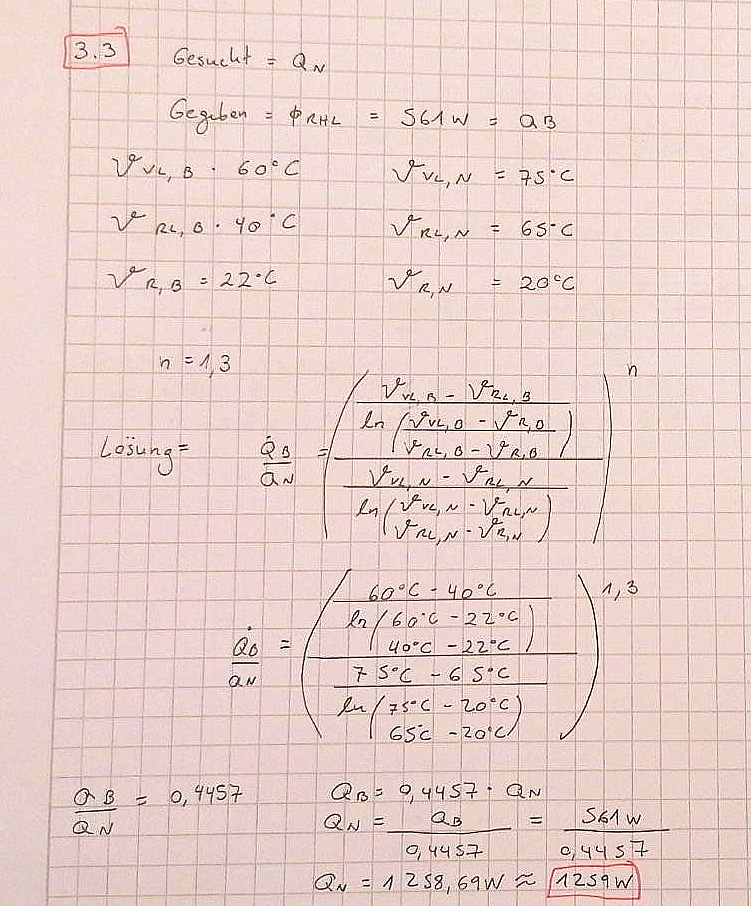 3.3 Gesucht = Q_N
Gegeben = ϕ_RHL = 561W = Q_B
ϑ_VL,B · 60°C ϑ_VL,N = 75°C
ϑ_RL,B · 40°C ϑ_RL,N = 65°C
ϑ_R,B = 22°C ϑ_R,N = 20°C
n = 1,3
n
ϑ_VL,B - ϑ_RL,B
ln (ϑ_VL,B - ϑ_R,B
ϑ_RL,B - ϑ_R,B)
Lösung = Q̇_B / Q_N =
ϑ_VL,N - ϑ_RL,N
ln (ϑ_VL,N - ϑ_RL,N
ϑ_RL,N - ϑ_R,N)
60°C - 40°C 1,3
ln (60°C - 22°C
40°C - 22°C)
Q̇_B / Q_N =
75°C - 65°C
ln (75°C - 20°C
65°C - 20°C)
Q_B / Q_N = 0,4457 Q_B = 0,4457 · Q_N
Q_N = Q_B / 0,4457 = 561W / 0,4457
Q_N = 1258,69W ≈ 1259W